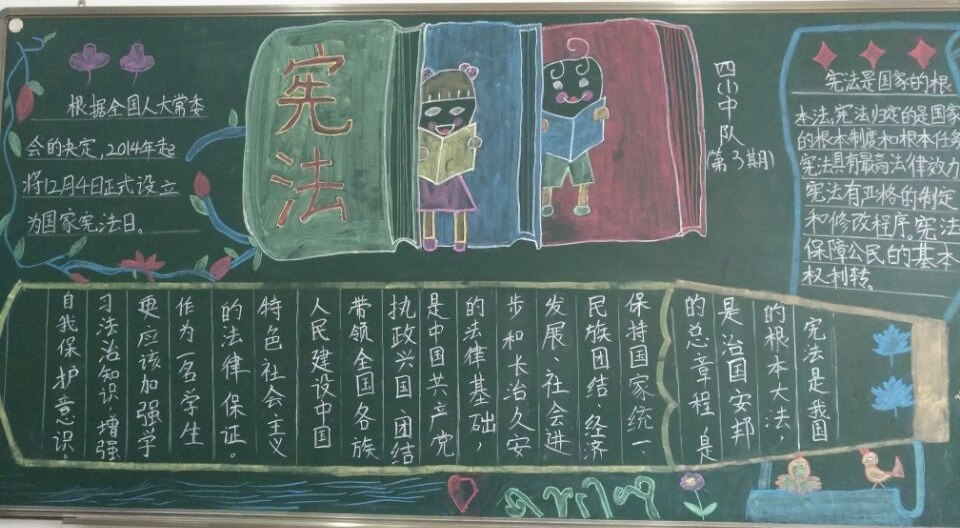 根据全国人大常委
会的决定,2014年起
将12月4日正式设立
为国家宪法日。
宪法
四(1)中队
(第3期)
宪法是国家的根
本法,宪法规定的是国家
的根本制度和根本任务
宪法具有最高法律效力
宪法有严格的制定
和修改程序,宪法
保障公民的基本
权利转。
宪法是我国
的根本大法,
是治国安邦
的总章程,是
保持国家统一、
民族团结、经济
发展、社会进
步和长治久安
的法律基础,
是中国共产党
执政兴国、团结
带领全国各族
人民建设中国
特色社会主义
的法律保证。
作为一名学生
更应该加强学
习法治知识,增强
自我保护意识